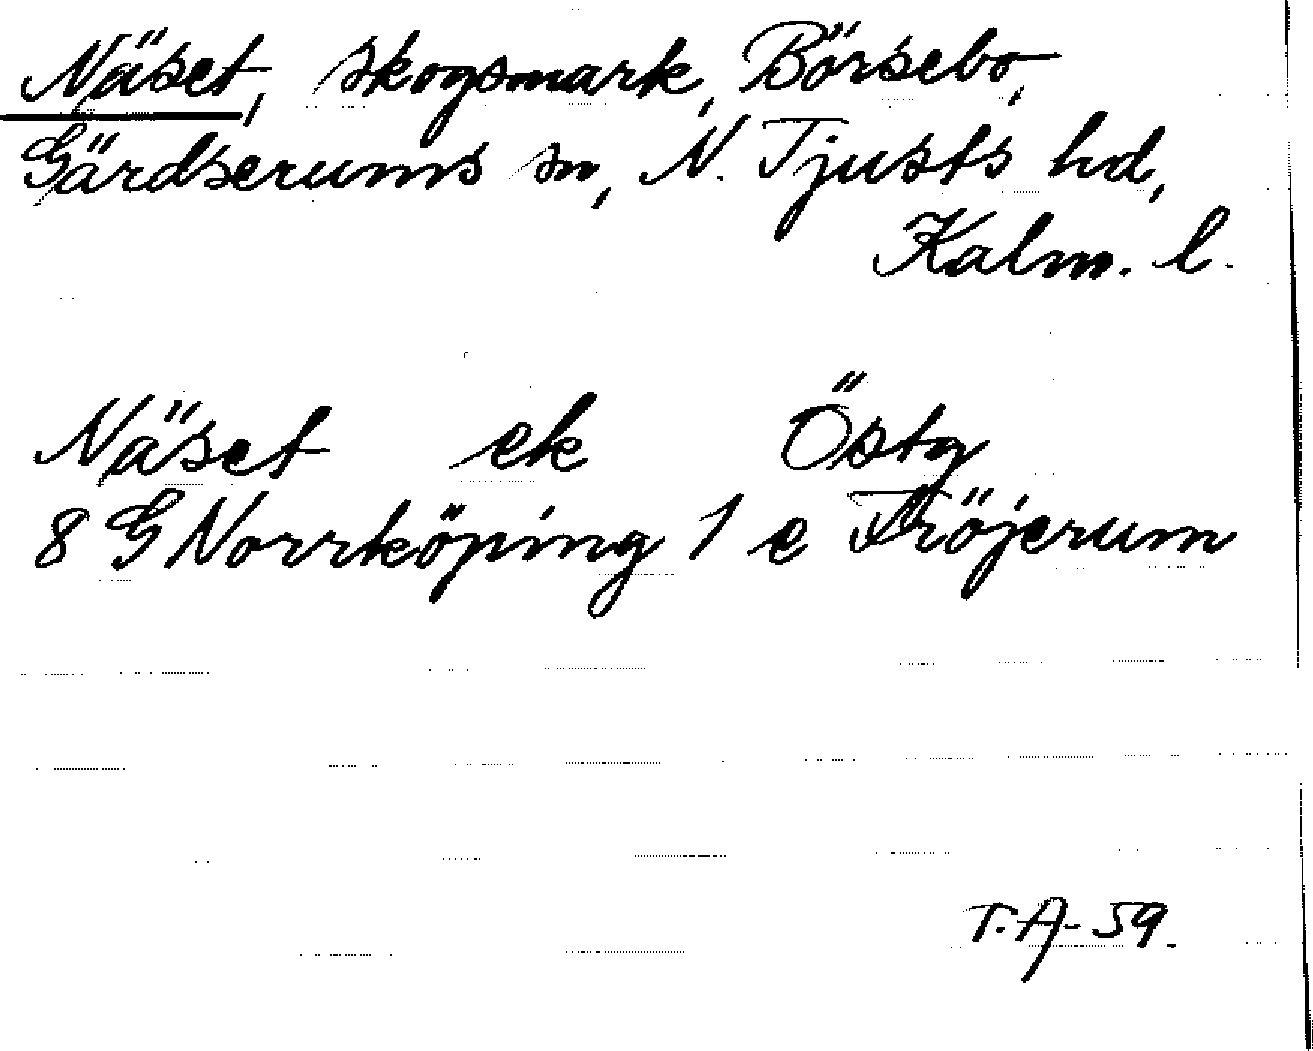 Näset, skogsmark, Börsebo,
Gärdserums sn, N. Tjusts hd,
Kalm. l.
Näset ek Östg
8 G Norrköping 1 e Fröjerum
T.A-59.